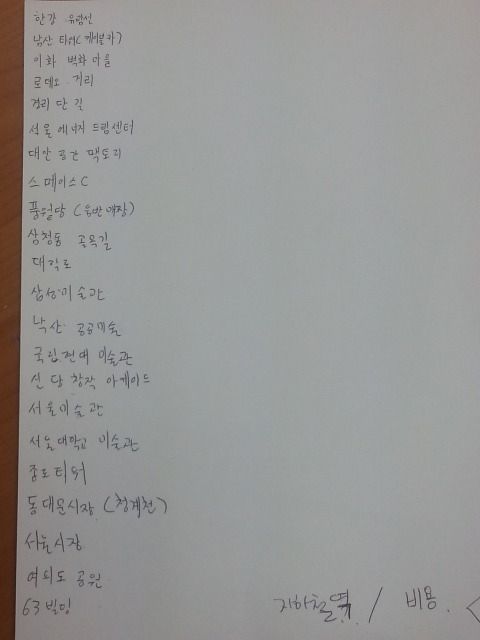 한강 유람선
남산 타워(케이블카)
이화 벽화 마을
로데오 거리
경리단길
서울 에너지 드림센터
대안 공간 맥토리
스페이스C
풍월당 (음반매장)
삼청동 골목길
대학로
삼성미술관
낙산 공공미술
국립현대 미술관
신당 창작 아케이드
서울미술관
서울대학교 미술관
종로타워
동대문시장 (청계천)
서울시장
여의도 공원
63빌딩
지하철역 / 비용